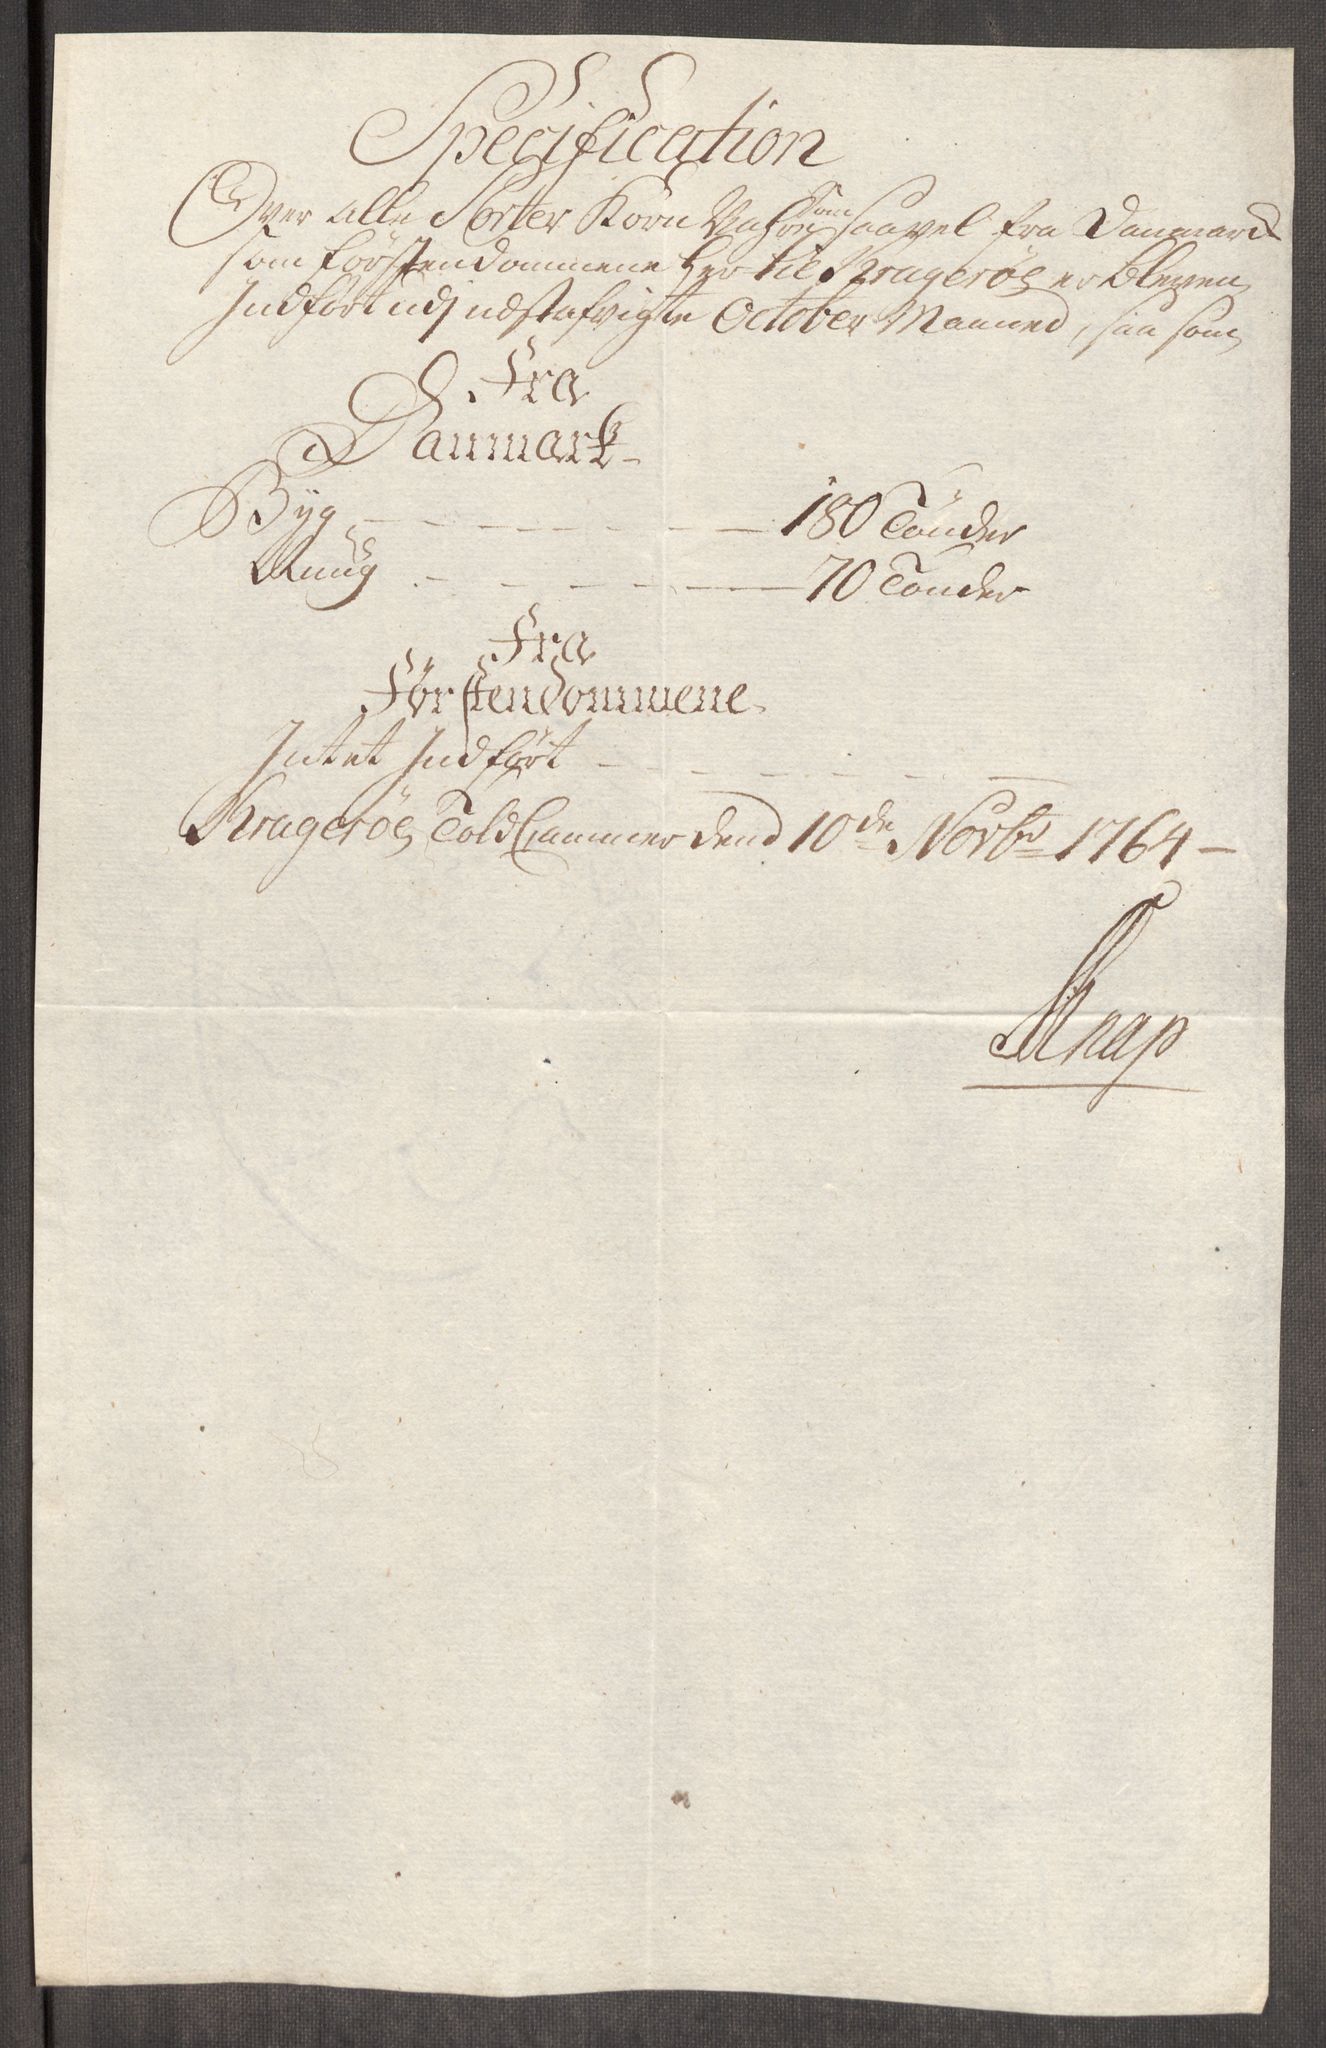 Specification
Over alle Sorter Korn Vahre som saavel fra Danmarck
som Førstendommene her til Kragerøe er bleven
Indført udj nestafvigte October Maaned, saa som
Fra
Danmark
Byg 180 Tönder
Ruug 70 Tönder
Fra
Førstendommene
Intet Indført
Kragerøe Told Cammer dend 10de Novbr 1764
Knap